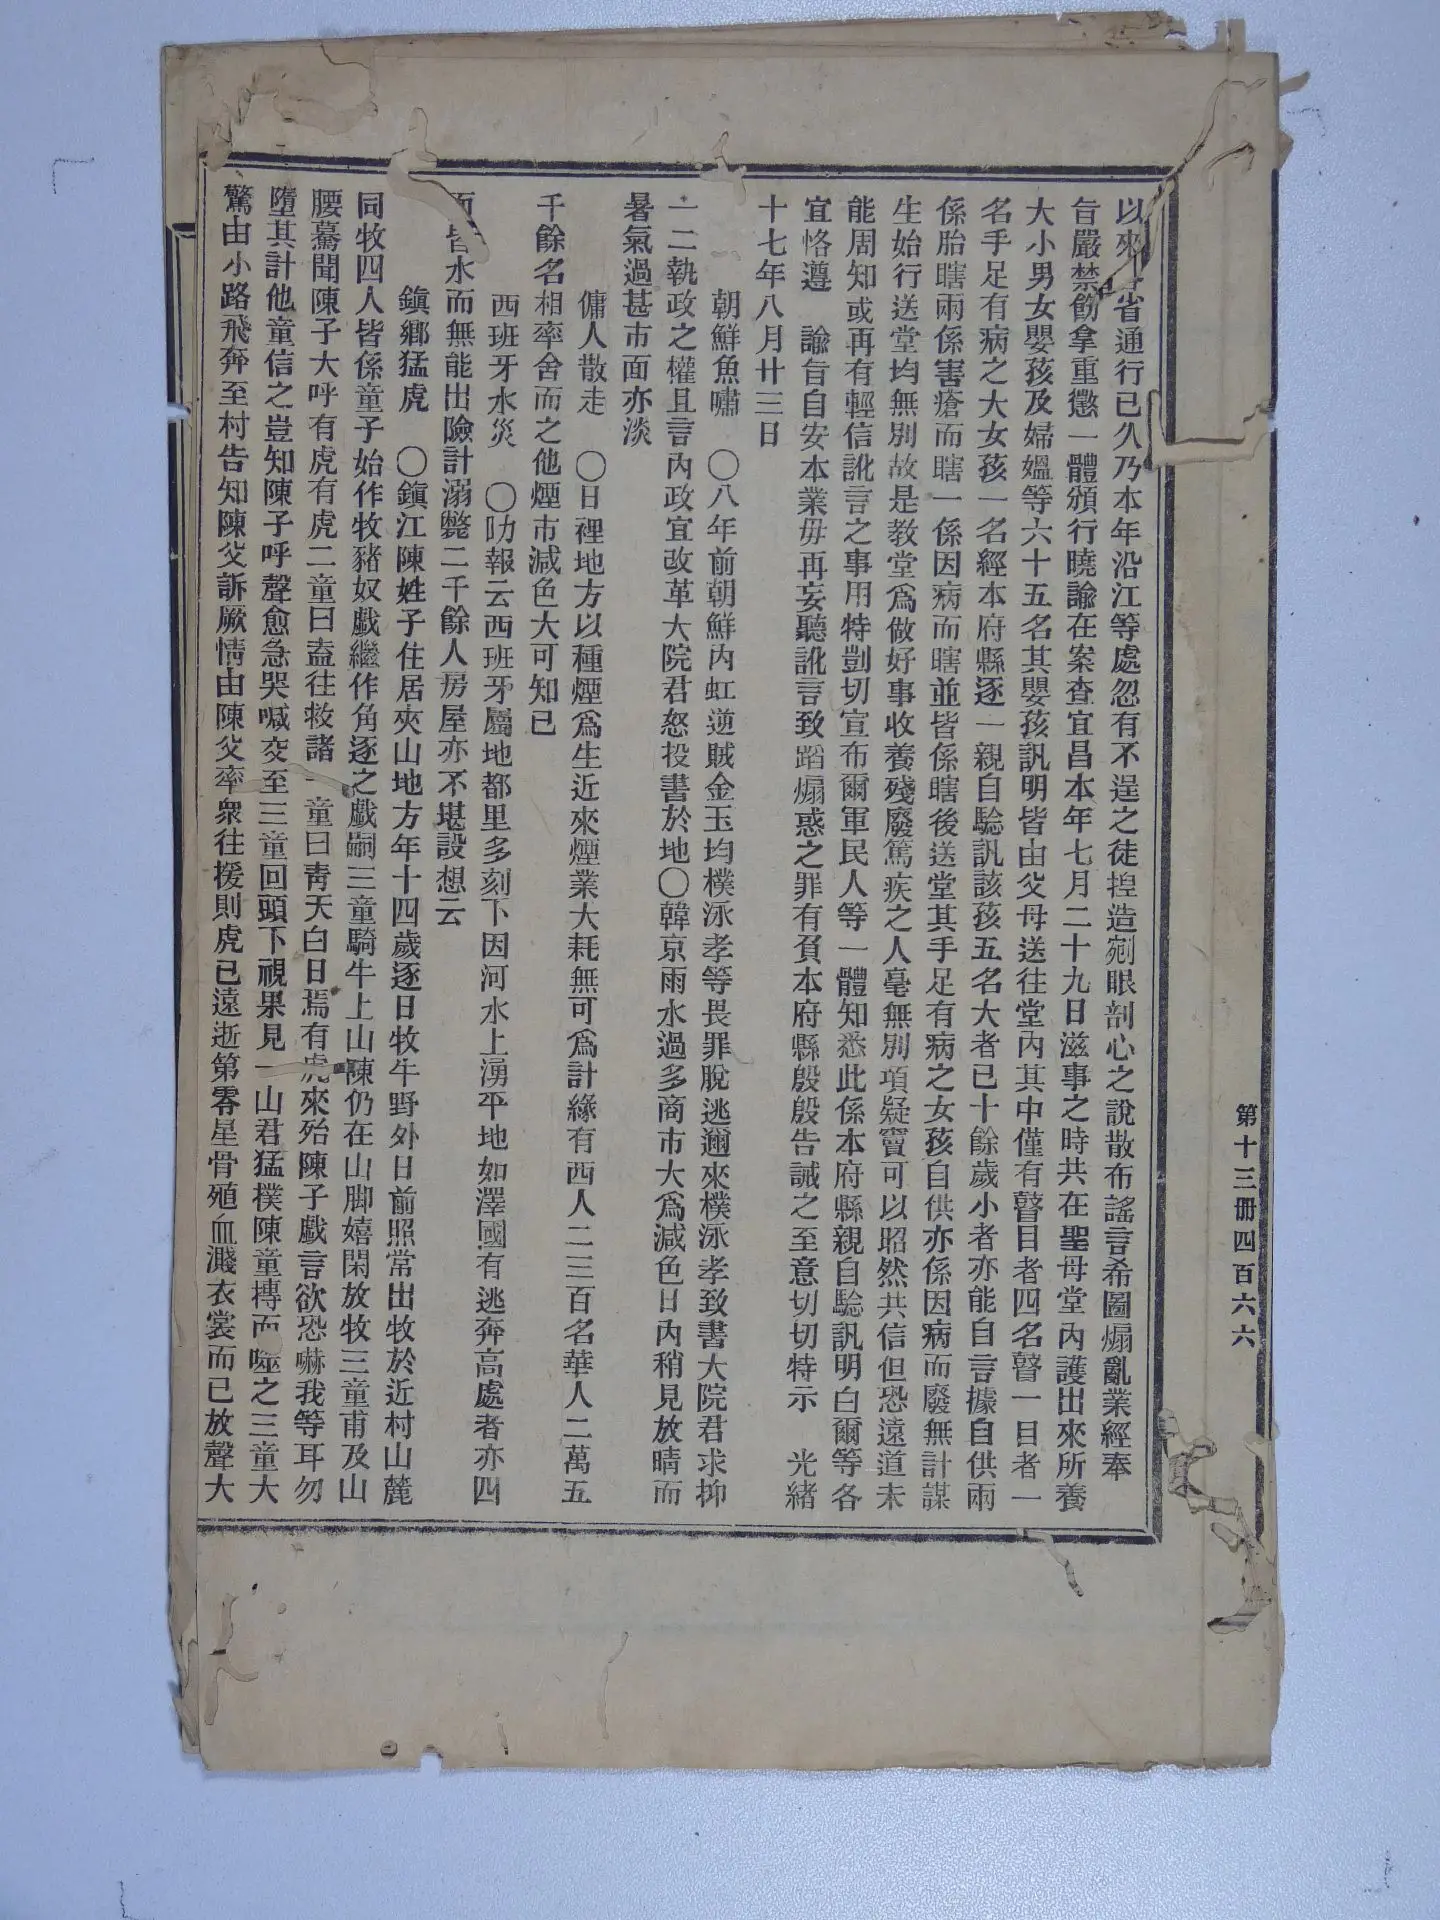 第十三册四百六六
以來省通行已久乃本年沿江等處忽有不逞之徒揑造剜眼剖心之說散布謠言希圖煽亂業經奉
旨嚴禁飭拿重懲一體頒行曉諭在案查宜昌本年七月二十九日滋事之時共在聖母堂內護出來所養
大小男女嬰孩及婦媼等六十五名其嬰孩訊明皆由父母送往堂內其中僅有瞽目者四名瞽一目者一
名手足有病之大女孩一名經本府縣逐一親自驗訊該孩五名大者已十餘歲小者亦能自言據自供兩
係胎瞎兩係害瘡而瞎一係因病而瞎並皆係瞎後送堂其手足有病之女孩自供亦係因病而廢無計謀
生始行送堂均無別故是教堂爲做好事收養殘廢篤疾之人毫無別項疑竇可以昭然共信但恐遠道未
能周知或再有輕信訛言之事用特剴切宣布爾軍民人等一體知悉此係本府縣親自驗訊明白爾等各
宜恪遵　諭旨自安本業毋再妄聽訛言致蹈煽惑之罪有負本府縣殷殷告誡之至意切切特示　光緒
十七年八月廿三日
朝鮮魚嘯　〇八年前朝鮮內虹逆賊金玉均樸泳孝等畏罪脫逃邇來樸泳孝致書大院君求抑
一二執政之權且言內政宜改革大院君怒投書於地〇韓京雨水過多商市大爲減色日內稍見放晴而
暑氣過甚市面亦淡
傭人散走　〇日裡地方以種煙爲生近來煙業大耗無可爲計緣有西人二三百名華人二萬五
千餘名相率舍而之他煙市減色大可知已
西班牙水災　〇叻報云西班牙屬地都里多刻下因河水上湧平地如澤國有逃奔高處者亦四
面皆水而無能出險計溺斃二千餘人房屋亦不堪設想云
鎭鄉猛虎　〇鎭江陳姓子住居夾山地方年十四歲逐日牧牛野外日前照常出牧於近村山麓
同牧四人皆係童子始作牧豬奴戲繼作角逐之戲嗣三童騎牛上山陳仍在山脚嬉閑放牧三童甫及山
腰驀聞陳子大呼有虎有虎二童曰盍往救諸一童曰靑天白日焉有虎來殆陳子戲言欲恐嚇我等耳勿
墮其計他童信之豈知陳子呼聲愈急哭喊交至三童回頭下視果見一山君猛撲陳童摶而噬之三童大
驚由小路飛奔至村告知陳父訴厥情由陳父率衆往援則虎已遠逝第零星骨殖血濺衣裳而已放聲大